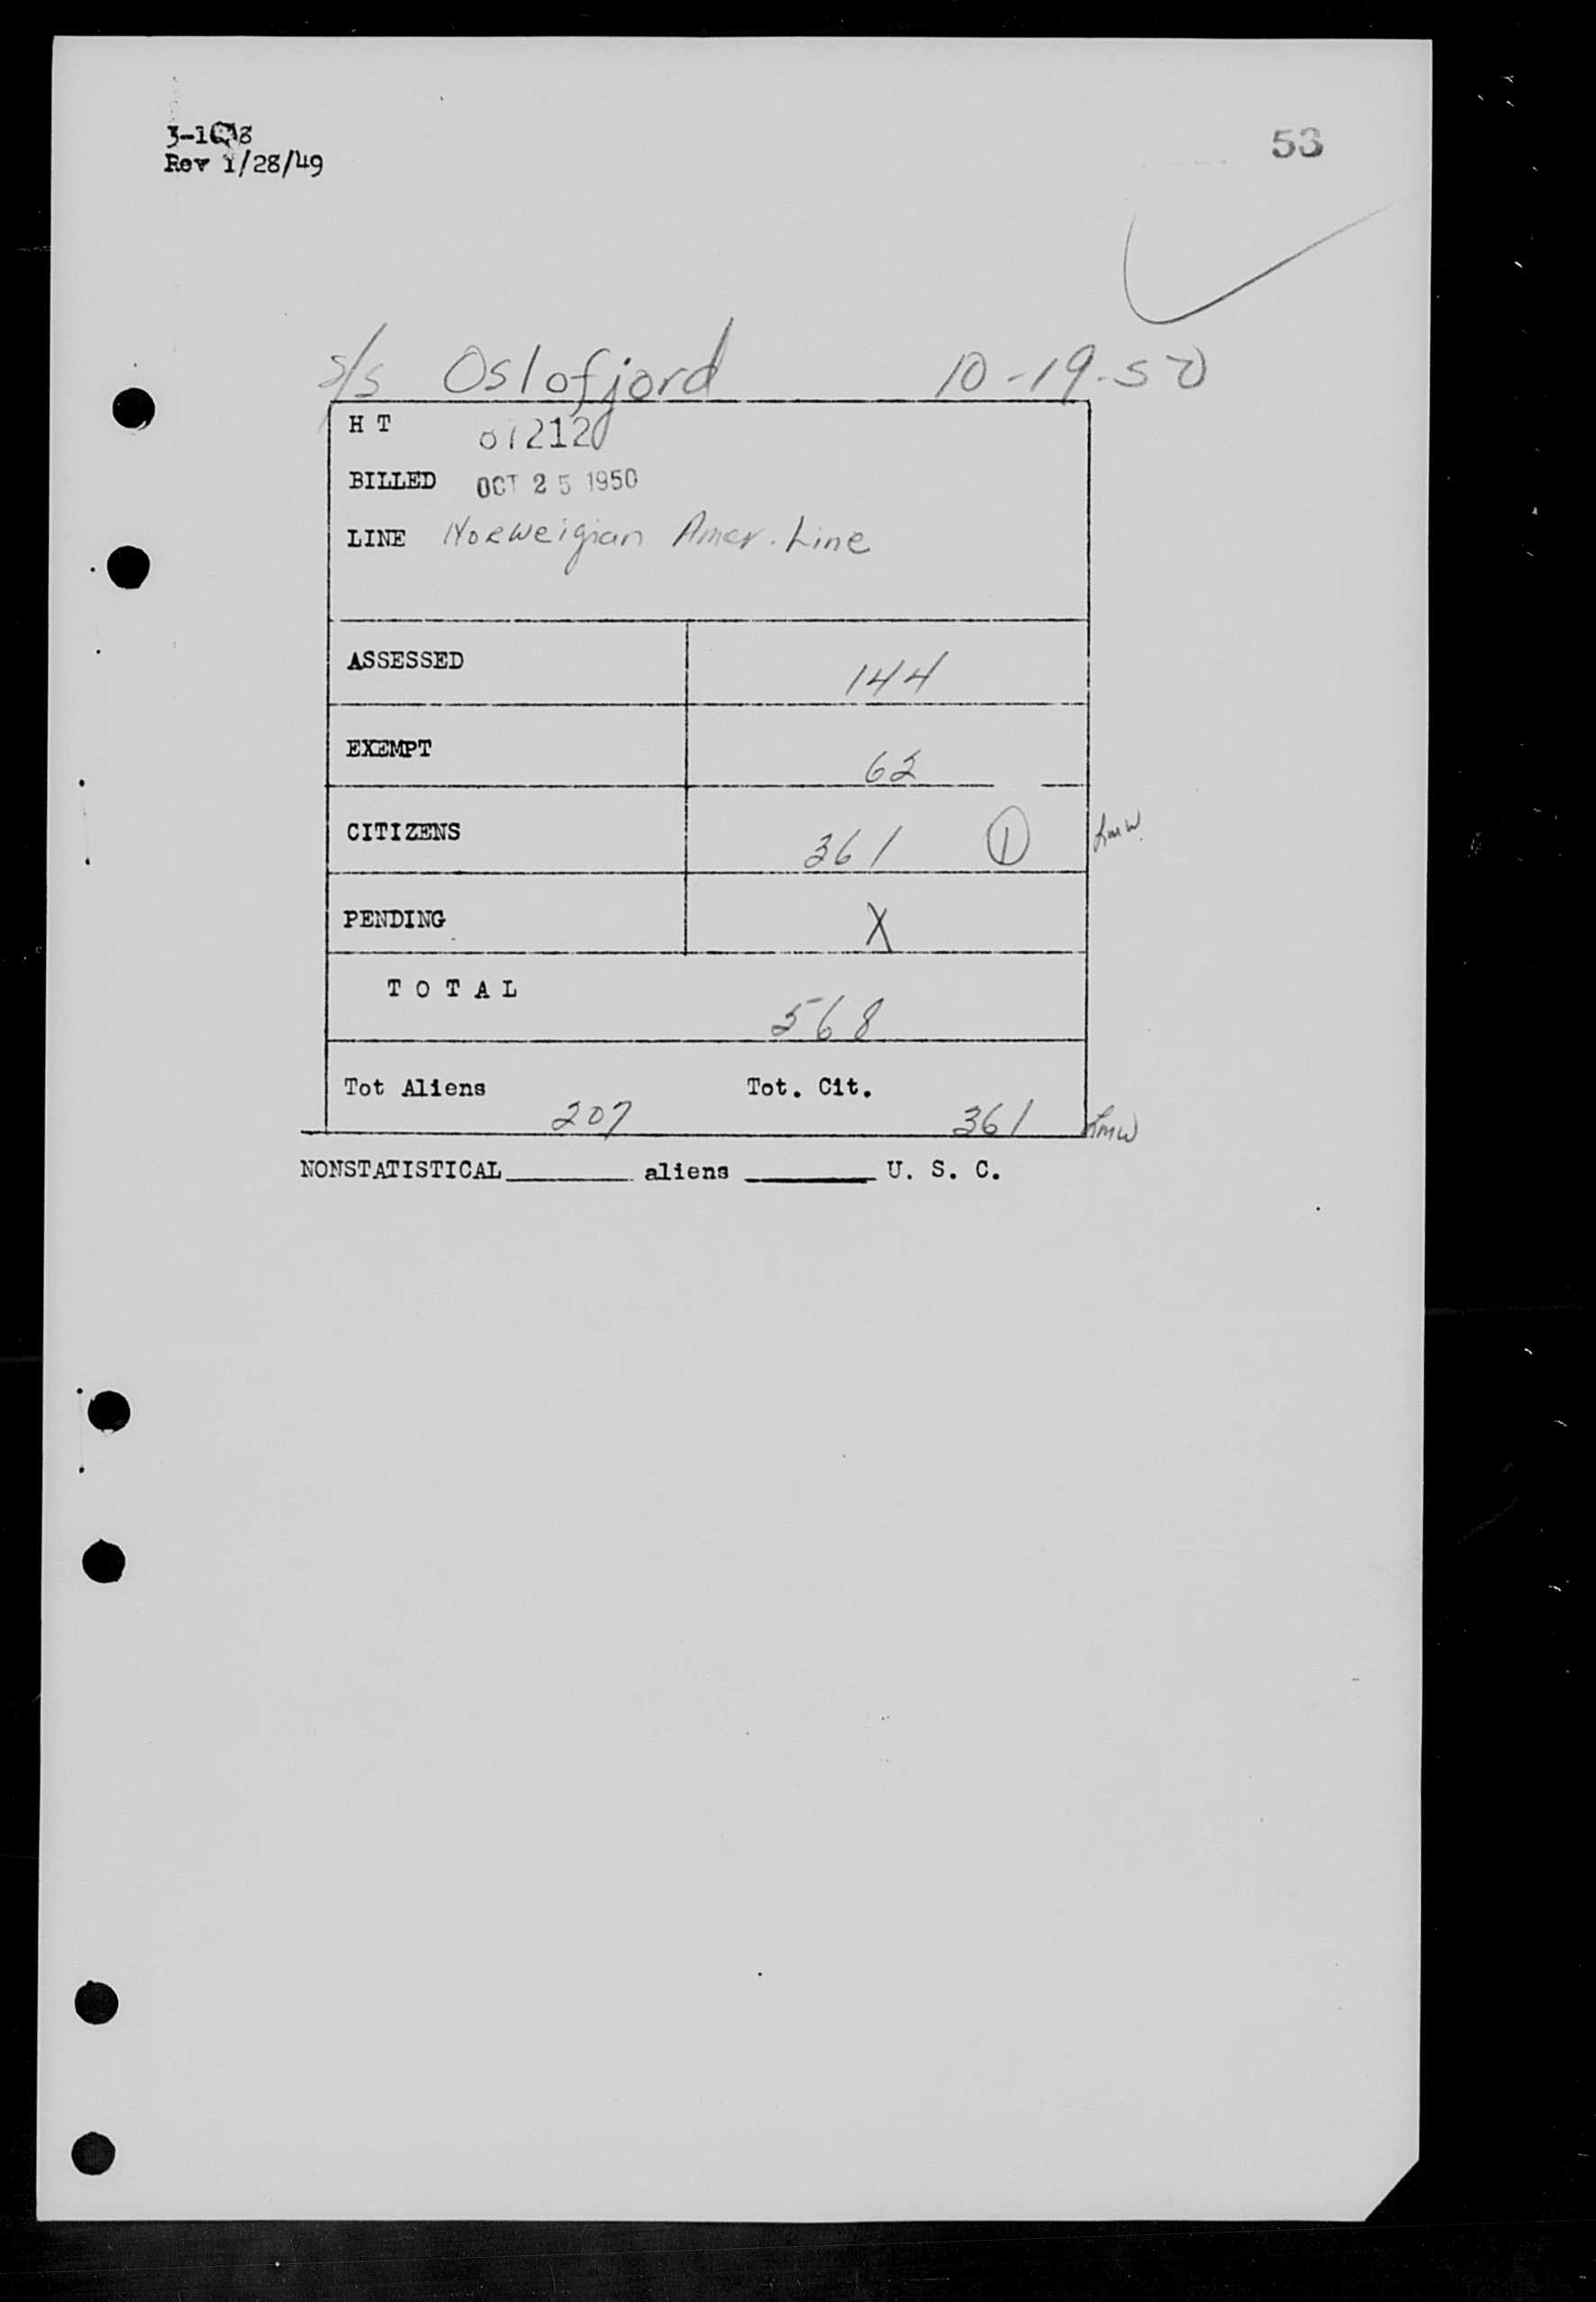 53
Rev 1/28/49
S/S Oslofjord 10-19-50
H T 012120
BILLED OCT 25 1950
LINE Norweigian Amer. Line
ASSESSED 144
EXEMPT 63
CITIZENS 361 1 LMW
PENDING X
T O T A L 568
Tot Aliens 207 Tot. Cit. 361 LMW
NONSTATISTICAL______ aliens ______ U. S. C.